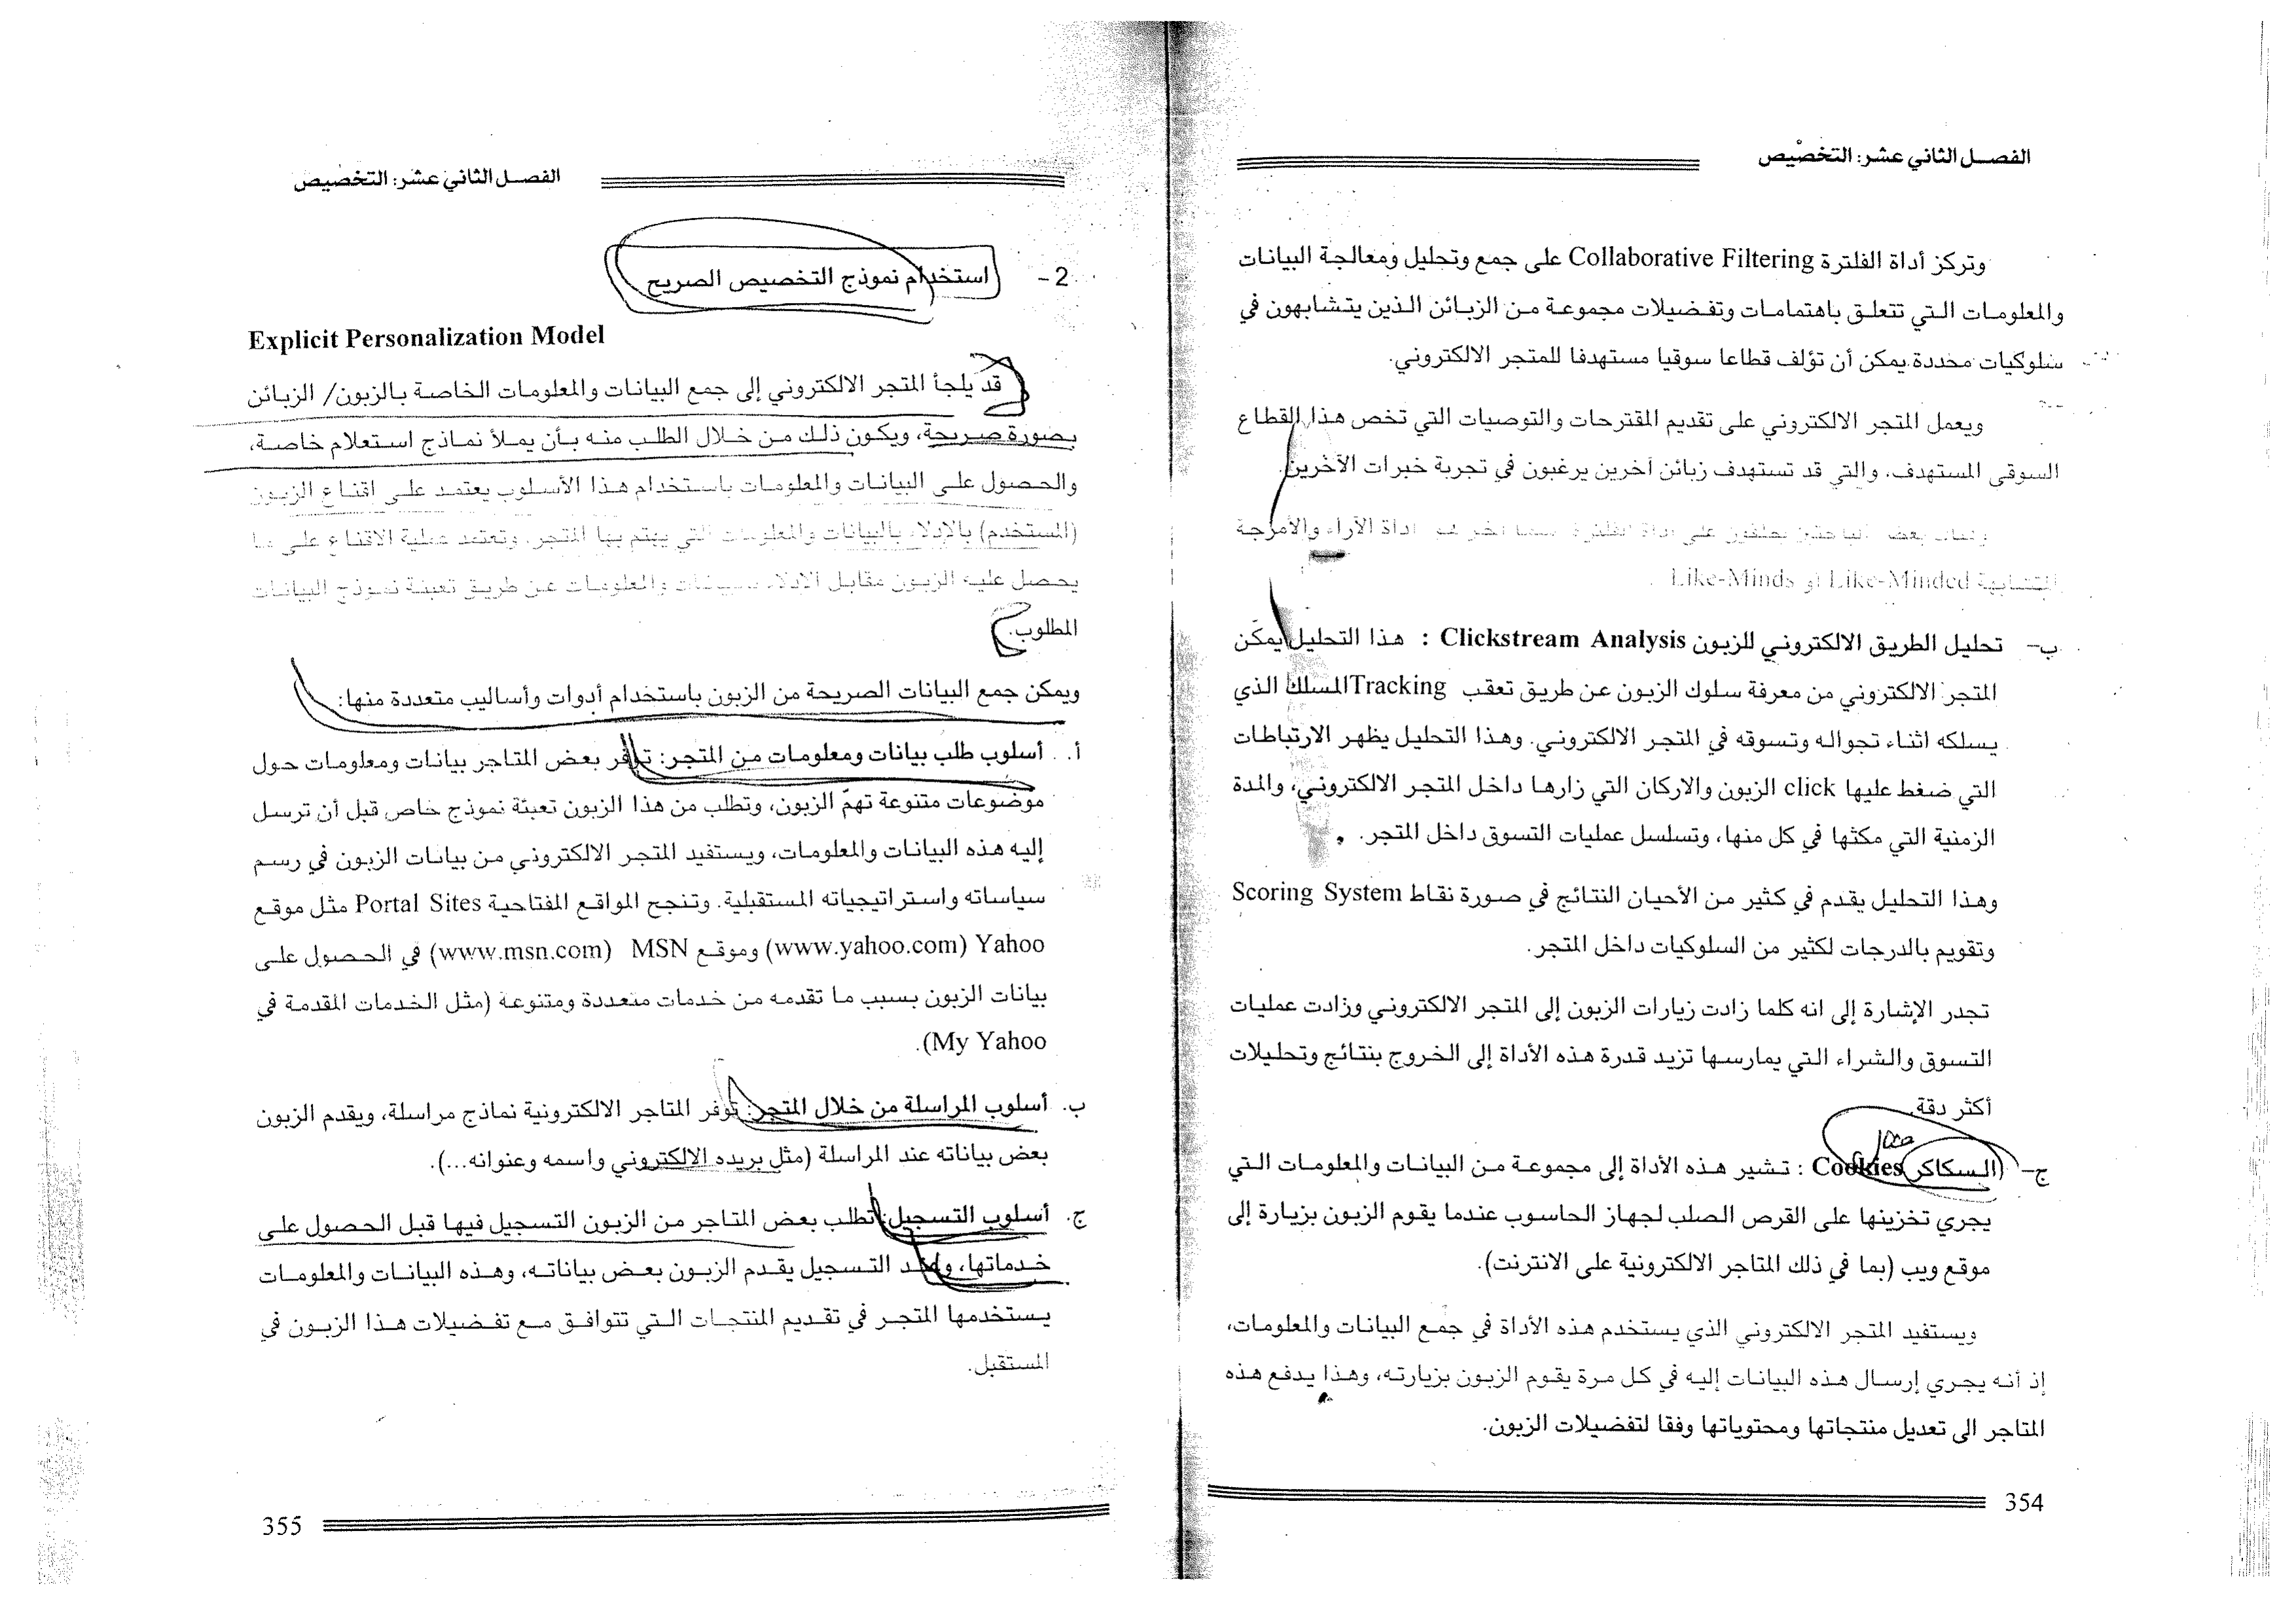 الفصل الثاني عشر: التخصيص
وتركز أداة الفلترة Collaborative Filtering على جمع وتحليل ومعالجة البيانات
والمعلومات التي تتعلق باهتمامات وتفضيلات مجموعة من الزبائن الذين يتشابهون في
سلوكيات محددة يمكن أن تؤلف قطاعا سوقيا مستهدفا للمتجر الالكتروني.
ويعمل المتجر الالكتروني على تقديم المقترحات والتوصيات التي تخص هذا القطاع
السوقي المستهدف، والتي قد تستهدف زبائن آخرين يرغبون في تجربة خبرات الآخرين.
بعض الباحثين يطلقون على أداة الفلترة اسما آخر هو أداة الآراء والأمزجة
المتشابهة Like-Minded أو Like-Minds .
ب- تحليل الطريق الالكتروني للزبون Clickstream Analysis : هذا التحليل يمكّن
المتجر الالكتروني من معرفة سلوك الزبون عن طريق تعقب Tracking المسلك الذي
يسلكه اثناء تجواله وتسوقه في المتجر الالكتروني. وهذا التحليل يظهر الارتباطات
التي ضغط عليها click الزبون والاركان التي زارها داخل المتجر الالكتروني، والمدة
الزمنية التي مكثها في كل منها، وتسلسل عمليات التسوق داخل المتجر.
وهذا التحليل يقدم في كثير من الأحيان النتائج في صورة نقاط Scoring System
وتقويم بالدرجات لكثير من السلوكيات داخل المتجر.
تجدر الإشارة إلى انه كلما زادت زيارات الزبون إلى المتجر الالكتروني وزادت عمليات
التسوق والشراء التي يمارسها تزيد قدرة هذه الأداة إلى الخروج بنتائج وتحليلات
أكثر دقة.
ج- (السكاكر Cookies : تشير هذه الأداة إلى مجموعة من البيانات والمعلومات التي
يجري تخزينها على القرص الصلب لجهاز الحاسوب عندما يقوم الزبون بزيارة إلى
موقع ويب (بما في ذلك المتاجر الالكترونية على الانترنت).
ويستفيد المتجر الالكتروني الذي يستخدم هذه الأداة في جمع البيانات والمعلومات،
إذ أنه يجري إرسال هذه البيانات إليه في كل مرة يقوم الزبون بزيارته، وهذا يدفع هذه
المتاجر الى تعديل منتجاتها ومحتوياتها وفقا لتفضيلات الزبون.
354
الفصل الثاني عشر: التخصيص
2- استخدام نموذج التخصيص الصريح
Explicit Personalization Model
قد يلجأ المتجر الالكتروني إلى جمع البيانات والمعلومات الخاصة بالزبون/ الزبائن
بصورة صريحة، ويكون ذلك من خلال الطلب منه بأن يملأ نماذج استعلام خاصة،
والحصول على البيانات والمعلومات باستخدام هذا الأسلوب يعتمد على اقناع الزبون
(المستخدم) بالإدلاء بالبيانات والمعلومات التي يهتم بها المتجر. وتعتمد عملية الاقناع على ما
يحصل عليه الزبون مقابل الإدلاء بالبيانات والمعلومات عن طريق تعبئة نموذج البيانات
المطلوب.
ويمكن جمع البيانات الصريحة من الزبون باستخدام أدوات وأساليب متعددة منها:
أ. أسلوب طلب بيانات ومعلومات من المتجر: توفر بعض المتاجر بيانات ومعلومات حول
موضوعات متنوعة تهمّ الزبون، وتطلب من هذا الزبون تعبئة نموذج خاص قبل أن ترسل
إليه هذه البيانات والمعلومات، ويستفيد المتجر الالكتروني من بيانات الزبون في رسم
سياساته واستراتيجياته المستقبلية. وتنجح المواقع المفتاحية Portal Sites مثل موقع
Yahoo (www.yahoo.com) وموقع MSN (www.msn.com) في الحصول على
بيانات الزبون بسبب ما تقدمه من خدمات متعددة ومتنوعة (مثل الخدمات المقدمة في
My Yahoo).
ب. أسلوب المراسلة من خلال المتجر: توفر المتاجر الالكترونية نماذج مراسلة، ويقدم الزبون
بعض بياناته عند المراسلة (مثل بريده الالكتروني واسمه وعنوانه...).
ج. أسلوب التسجيل: تطلب بعض المتاجر من الزبون التسجيل فيها قبل الحصول على
خدماتها، وعند التسجيل يقدم الزبون بعض بياناته، وهذه البيانات والمعلومات
يستخدمها المتجر في تقديم المنتجات التي تتوافق مع تفضيلات هذا الزبون في
المستقبل.
355